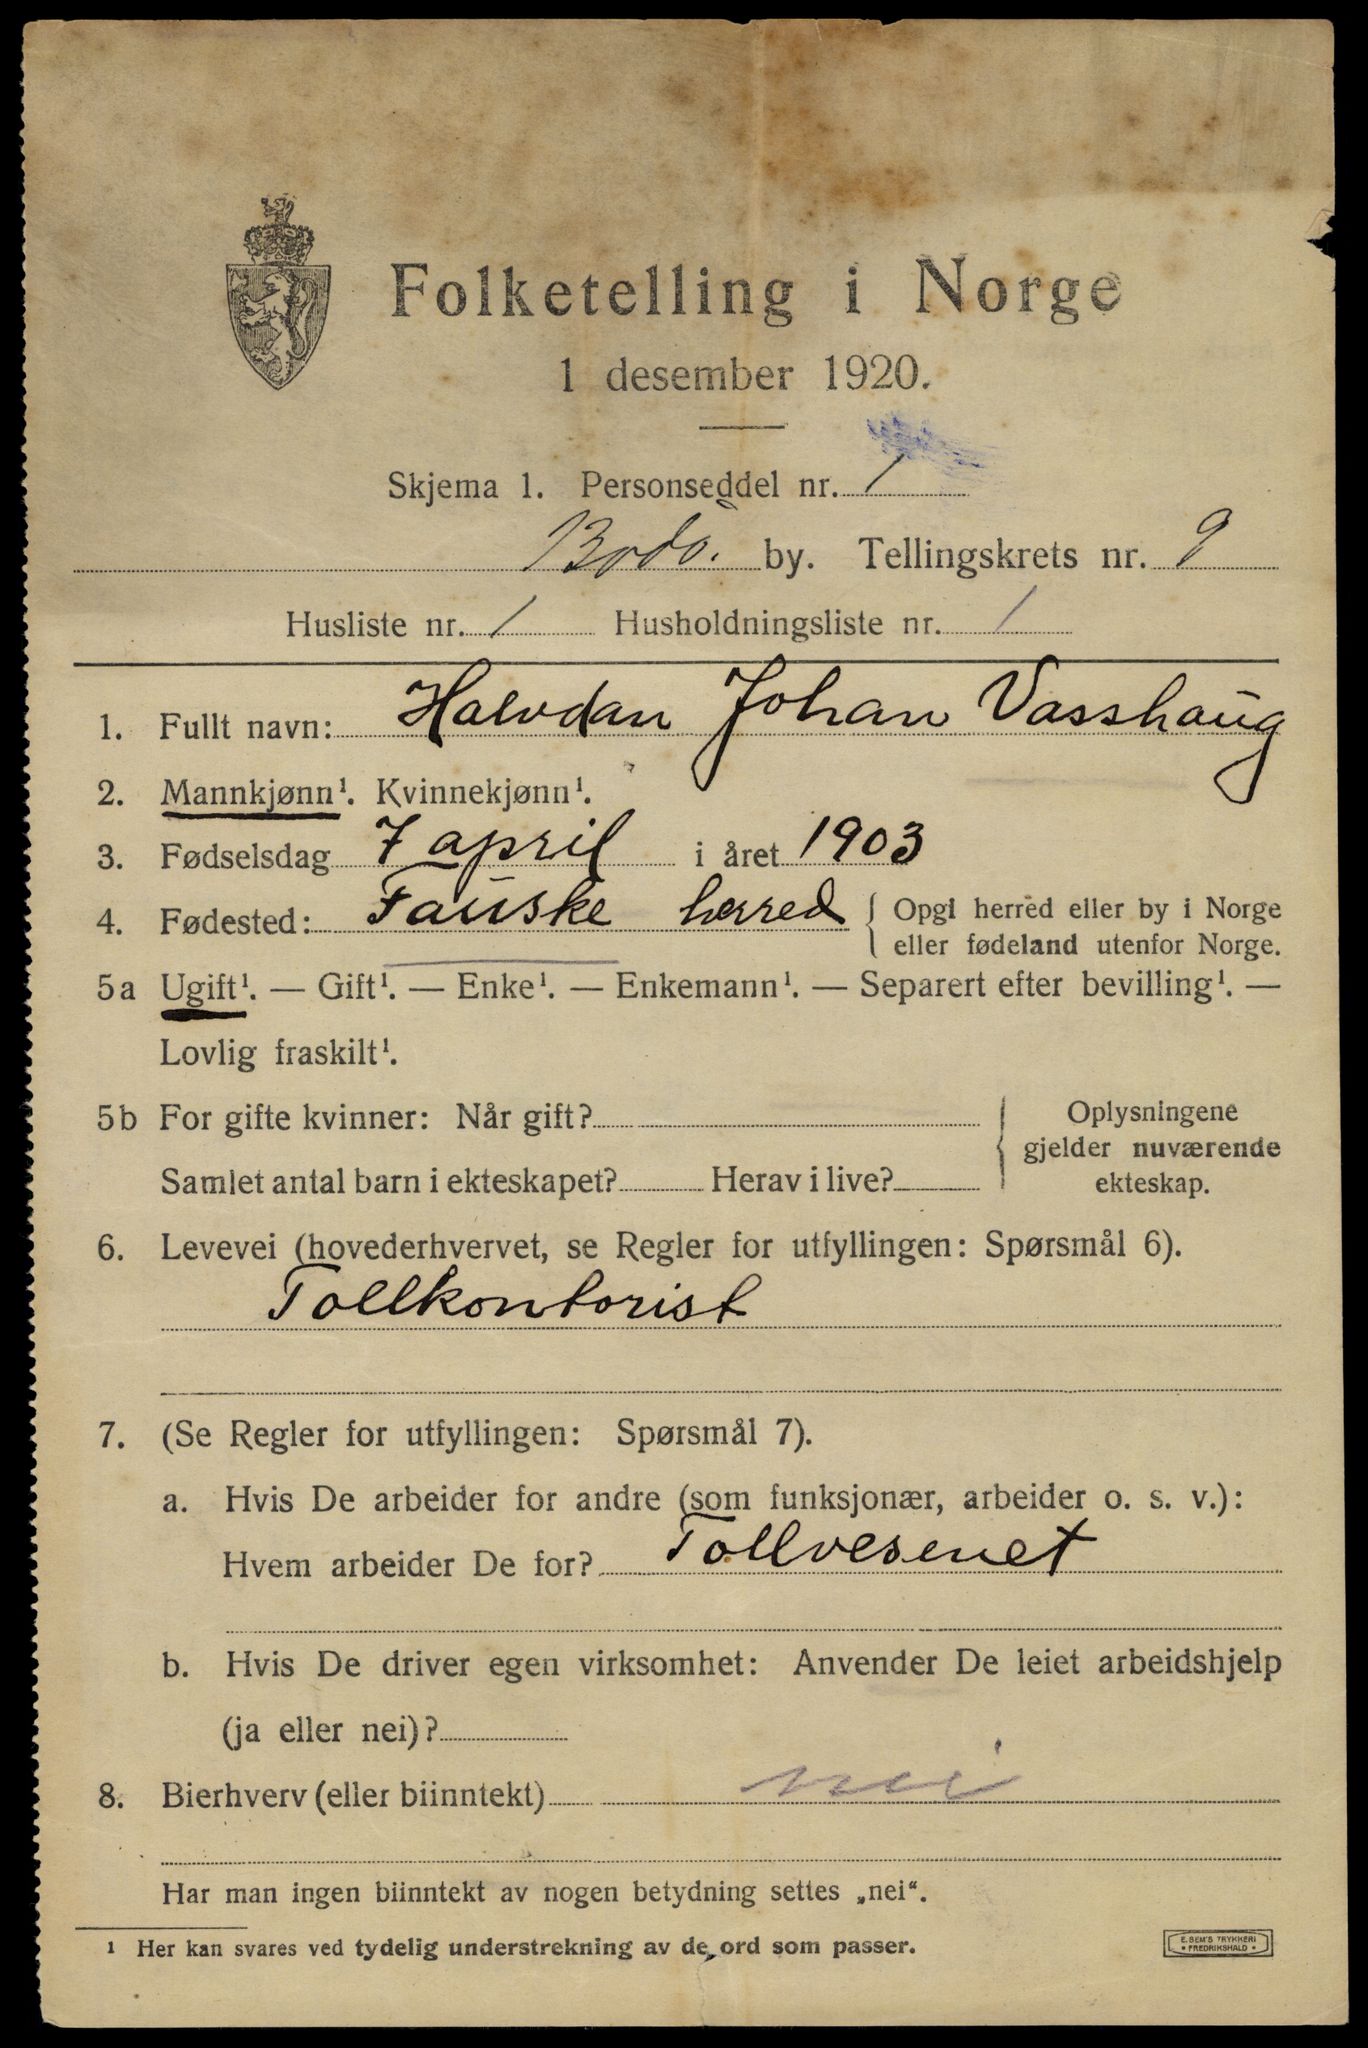 Folketelling i Norge
1 desember 1920.
Skjema 1. Personseddel nr. 1
Bodø. by. Tellingskrets nr. 9
Husliste nr. 1 Husholdningsliste nr. 1
1. Fullt navn: Halvdan Johan Vasshaug
2. Mannkjønn¹. Kvinnekjønn¹.
3. Fødselsdag 7 april i året 1903
4. Fødested: Fauske herred { Opgi herred eller by i Norge
eller fødeland utenfor Norge.
5a Ugift¹. — Gift¹. — Enke¹. — Enkemann¹. — Separert efter bevilling¹. —
Lovlig fraskilt¹.
5b For gifte kvinner: Når gift?
Samlet antal barn i ekteskapet? Herav i live?
Oplysningene
gjelder nuværende
ekteskap.
6. Levevei (hovederhvervet, se Regler for utfyllingen: Spørsmål 6).
Tollkontorist
7. (Se Regler for utfyllingen: Spørsmål 7).
a. Hvis De arbeider for andre (som funksjonær, arbeider o. s. v.):
Hvem arbeider De for? Tollvesenet
b. Hvis De driver egen virksomhet: Anvender De leiet arbeidshjelp
(ja eller nei)?
8. Bierhverv (eller biinntekt) nei
Har man ingen biinntekt av nogen betydning settes „nei“.
¹ Her kan svares ved tydelig understrekning av de ord som passer.
E. SEM'S TRYKKERI
• FREDRIKSHALD •